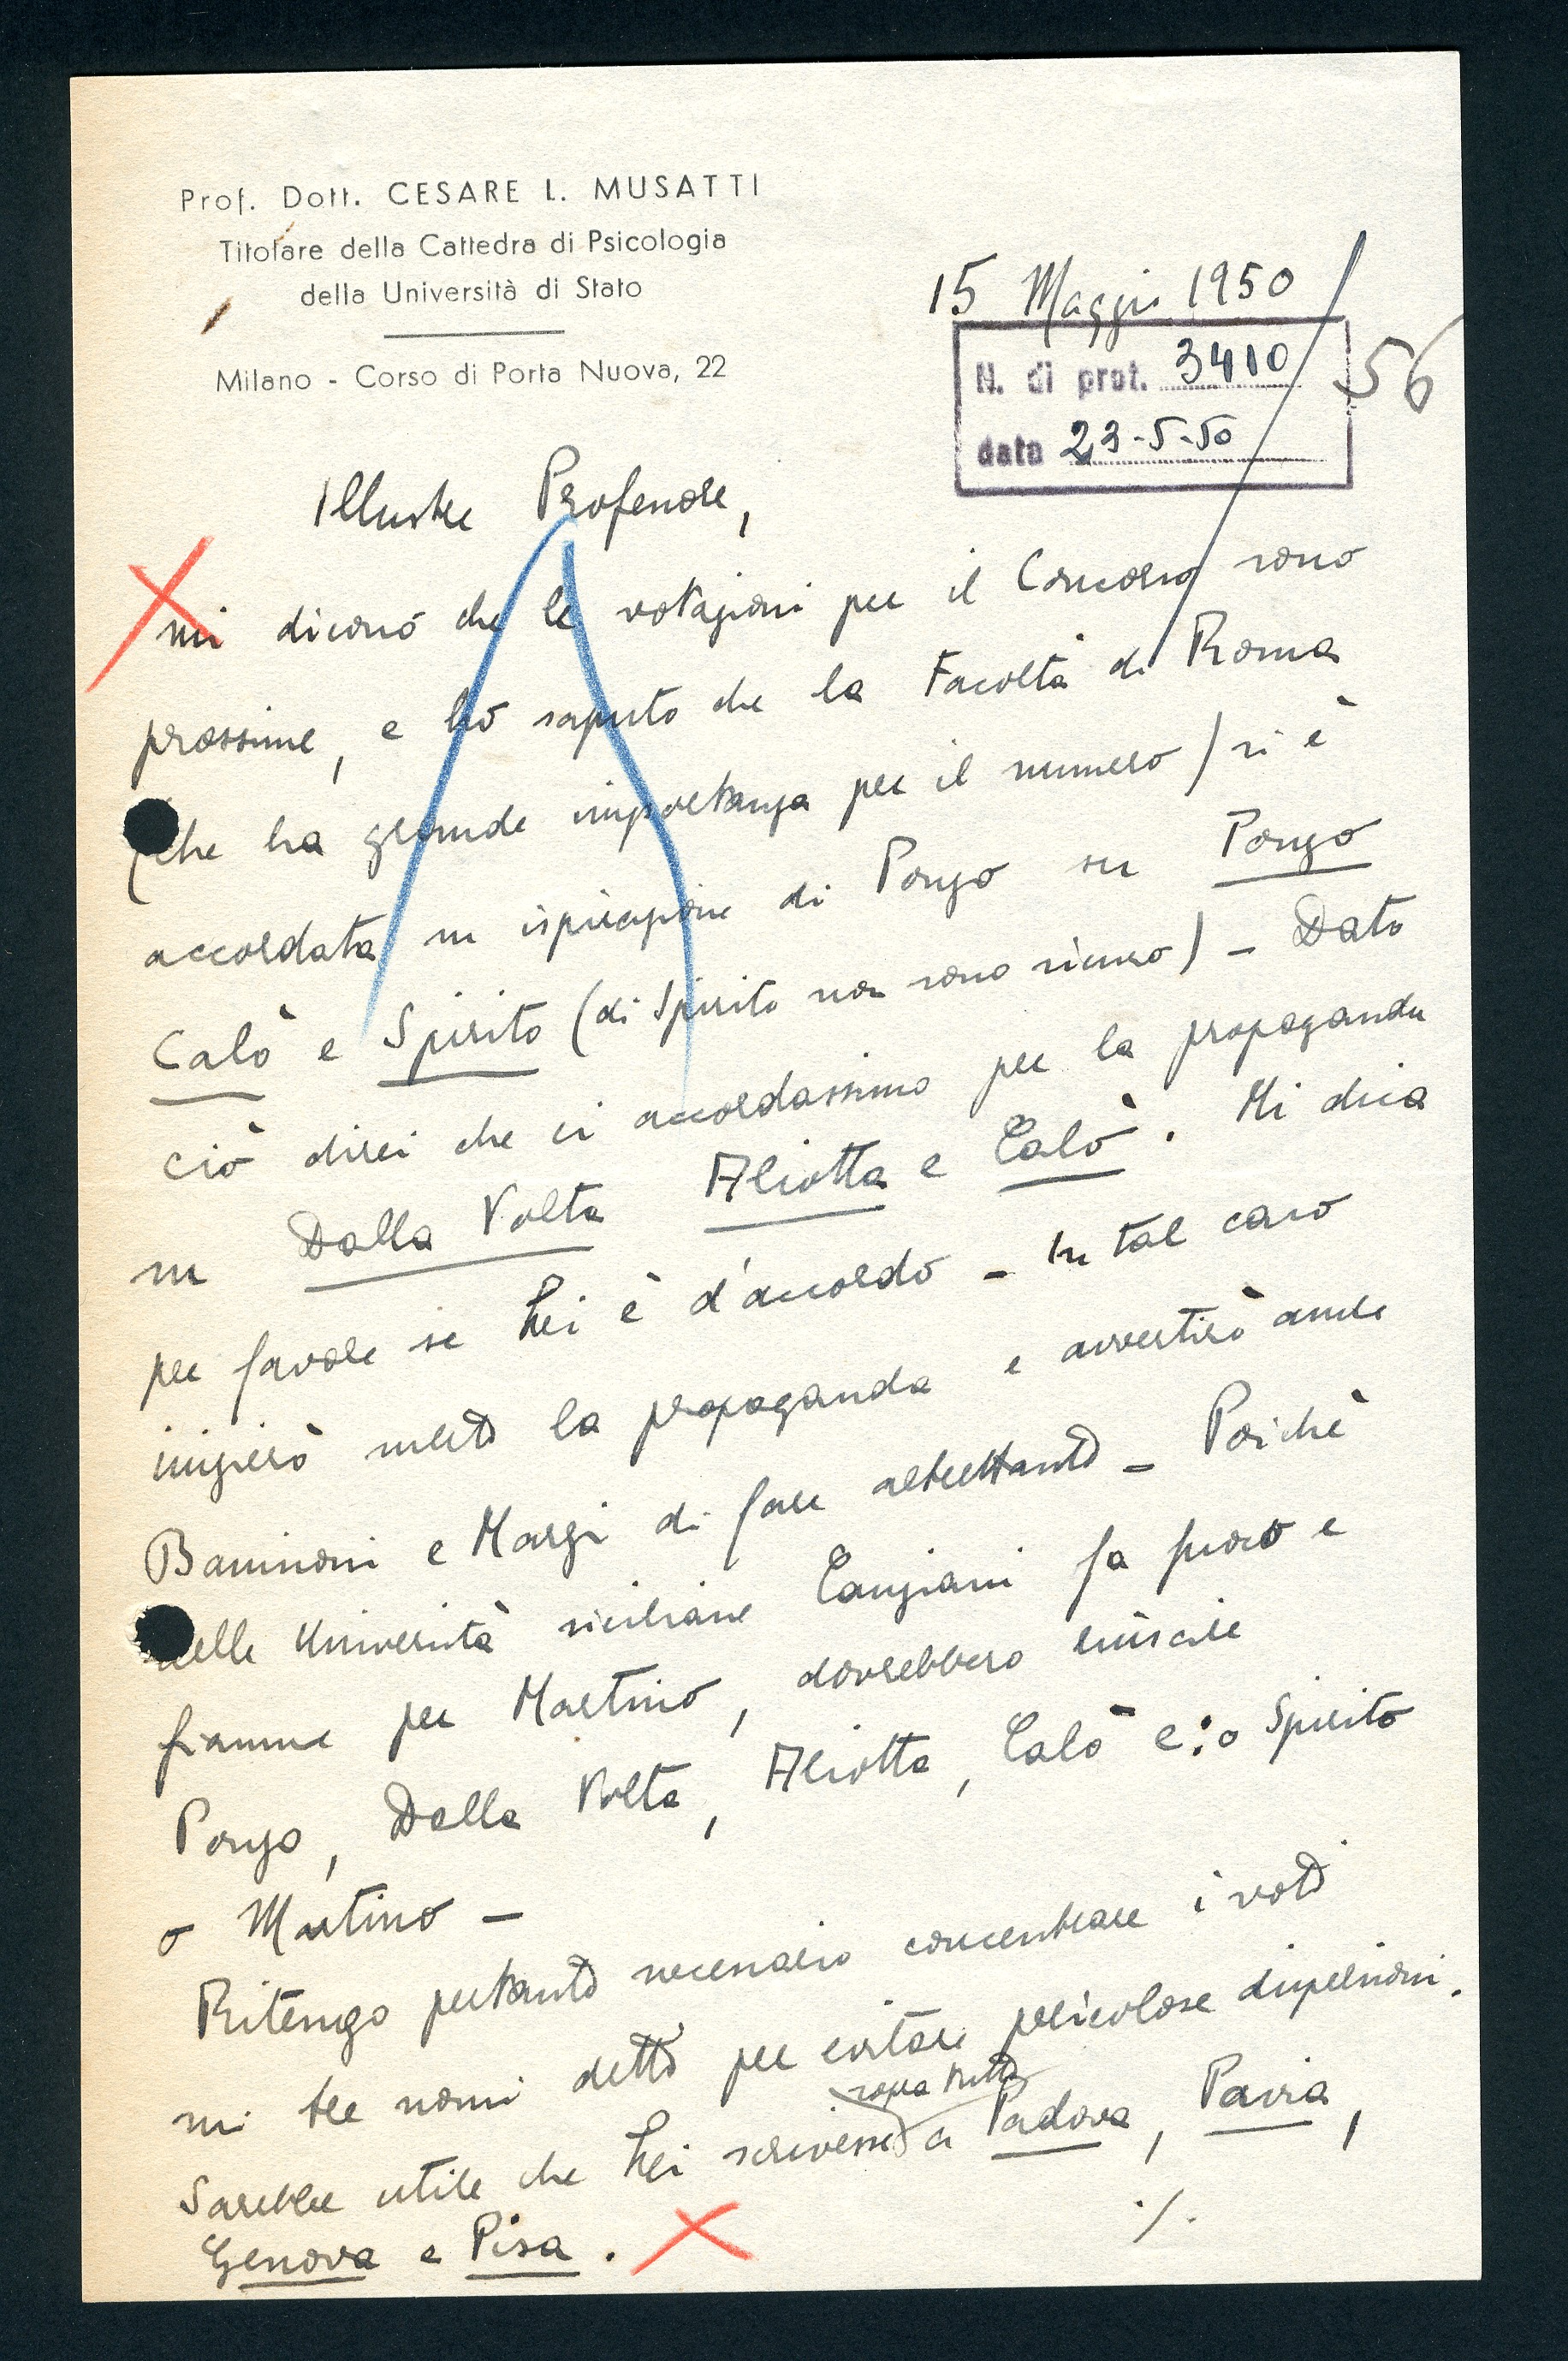 Prof. Dott. CESARE L. MUSATTI
Titolare della Cattedra di Psicologia
della Università di Stato
Milano - Corso di Porta Nuova, 22
15 Maggio 1950
N. di prot. 3410
data 23-5-50
56
Illustre Professore,
mi dicono che le votazioni per il Concorso sono
prossime, e ho saputo che la Facoltà di Roma
(che ha grande importanza per il numero) si è
accordata su ispirazione di Ponzo su Ponzo
Calò e Spirito (di Spirito non sono sicuro) - Dato
ciò direi che ci accordassimo per la propaganda
su Dalla Volta Aliotta e Calò. Mi dica
per favore se Lei è d'accordo - In tal caso
inizierò subito la propaganda e avvertirò anche
Banissoni e Marzi di fare altrettanto - Poichè
nelle Università siciliane Canziani fa fuoco e
fiamme per Martino, dovrebbero riuscire
Ponzo, Dalla Volta, Aliotta, Calò e: o Spirito
o Martino -
Ritengo pertanto necessario concentrare i voti
sui tre nomi detti per evitare pericolose dispersioni.
Sarebbe utile che Lei scrivesse sopra tutto a Padova, Pavia,
Genova e Pisa.
./.